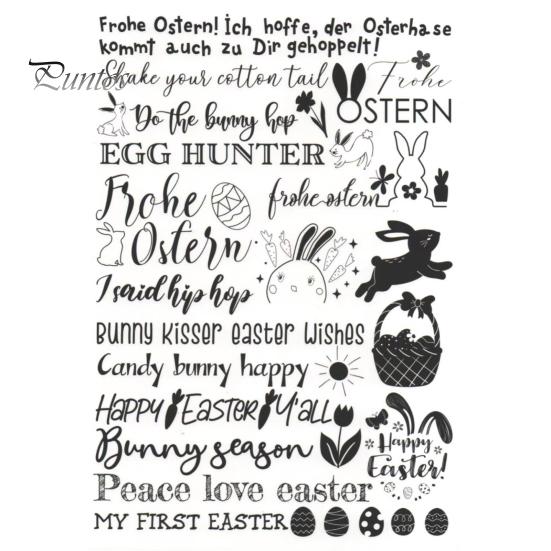 Frohe Ostern! Ich hoffe, der Osterhase
kommt auch zu Dir gehoppelt!
Shake your cotton tail
Frohe
OSTERN
Do the bunny hop
EGG HUNTER
Frohe
Ostern
frohe ostern
I said hip hop
Bunny kisser easter wishes
Candy bunny happy
HAPPY EASTER Y'all
Happy
Easter!
Bunny season
Peace love easter
MY FIRST EASTER